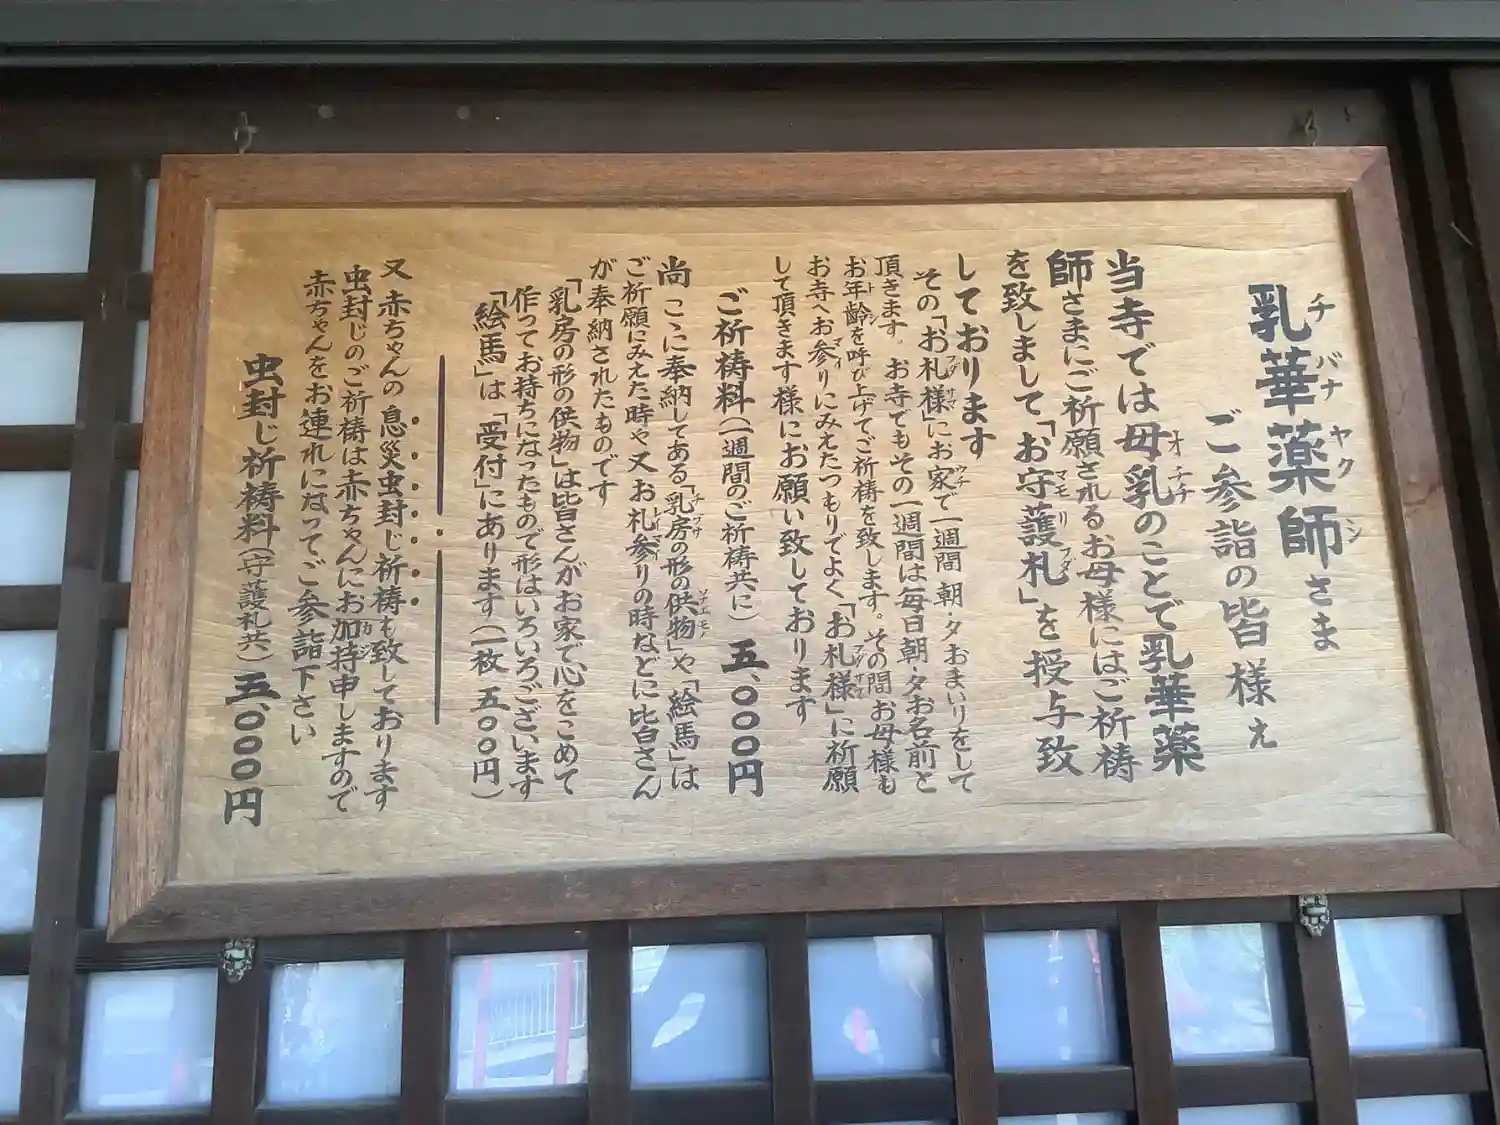 乳華薬師さま
ご参詣の皆様え
当寺では母乳のことで乳華薬
師さまにご祈願されるお母様にはご祈祷
を致しまして「お守護札」を授与致
しております
その「お札様」にお家で一週間 朝・夕おまいりをして
頂きます。お寺でもその一週間は毎日朝・夕お名前と
お年齢を呼び上げてご祈祷を致します。その間お母様も
お寺へお参りにみえたつもりでよく「お札様」に祈願
して頂きます様にお願い致しております
ご祈祷料(一週間のご祈祷共に) 五、〇〇〇円
尚 こゝに奉納してある「乳房の形の供物」や「絵馬」は
ご祈願にみえた時や又お札参りの時などに皆さん
が奉納されたものです
「乳房の形の供物」は皆さんがお家で心をこめて
作ってお持ちになったもので形はいろいろございます
「絵馬」は「受付」にあります(一枚 五〇〇円)
又 赤ちゃんの 息災虫封じ祈祷も致しております
虫封じのご祈祷は赤ちゃんにお加持申しますので
赤ちゃんをお連れになってご参詣下さい
虫封じ祈祷料(守護札共) 五、〇〇〇円